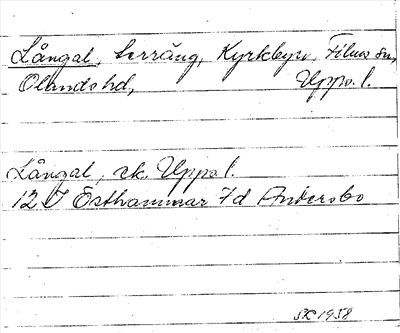 Långal, terräng, Kyrkbyn, Films sn,
Olandshd, Upps. l.
Långal, ek. Upps. l.
12 I Östhammar 7d Andersbo
1958